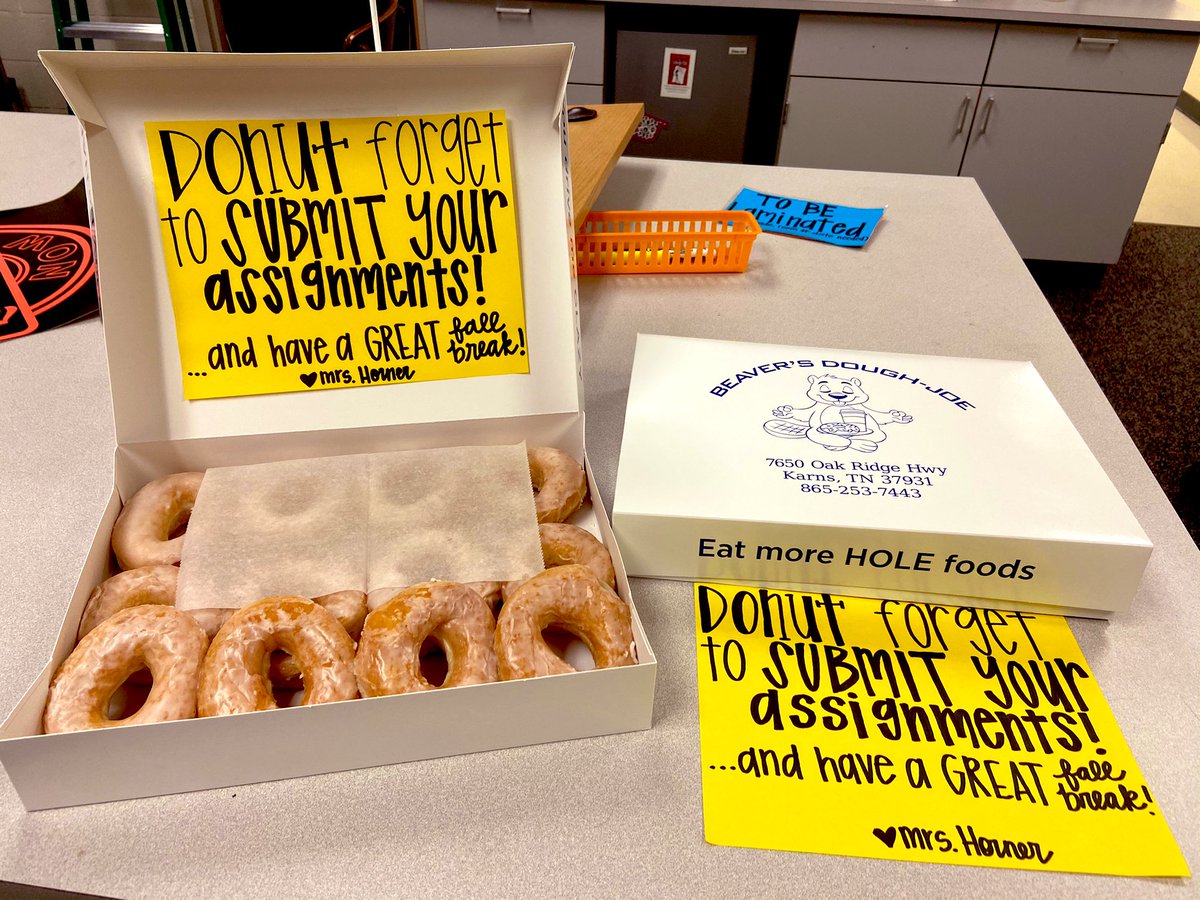 Donut forget
to SUBMIT your
assignments!
...and have a GREAT fall
break!
♥mrs. Horner
TO BE
Laminated
MOM
BEAVER'S DOUGH-JOE
7650 Oak Ridge Hwy
Karns, TN 37931
865-253-7443
Eat more HOLE foods
Donut forget
to SUBMIT your
assignments!
...and have a GREAT fall
break!
♥mrs. Horner